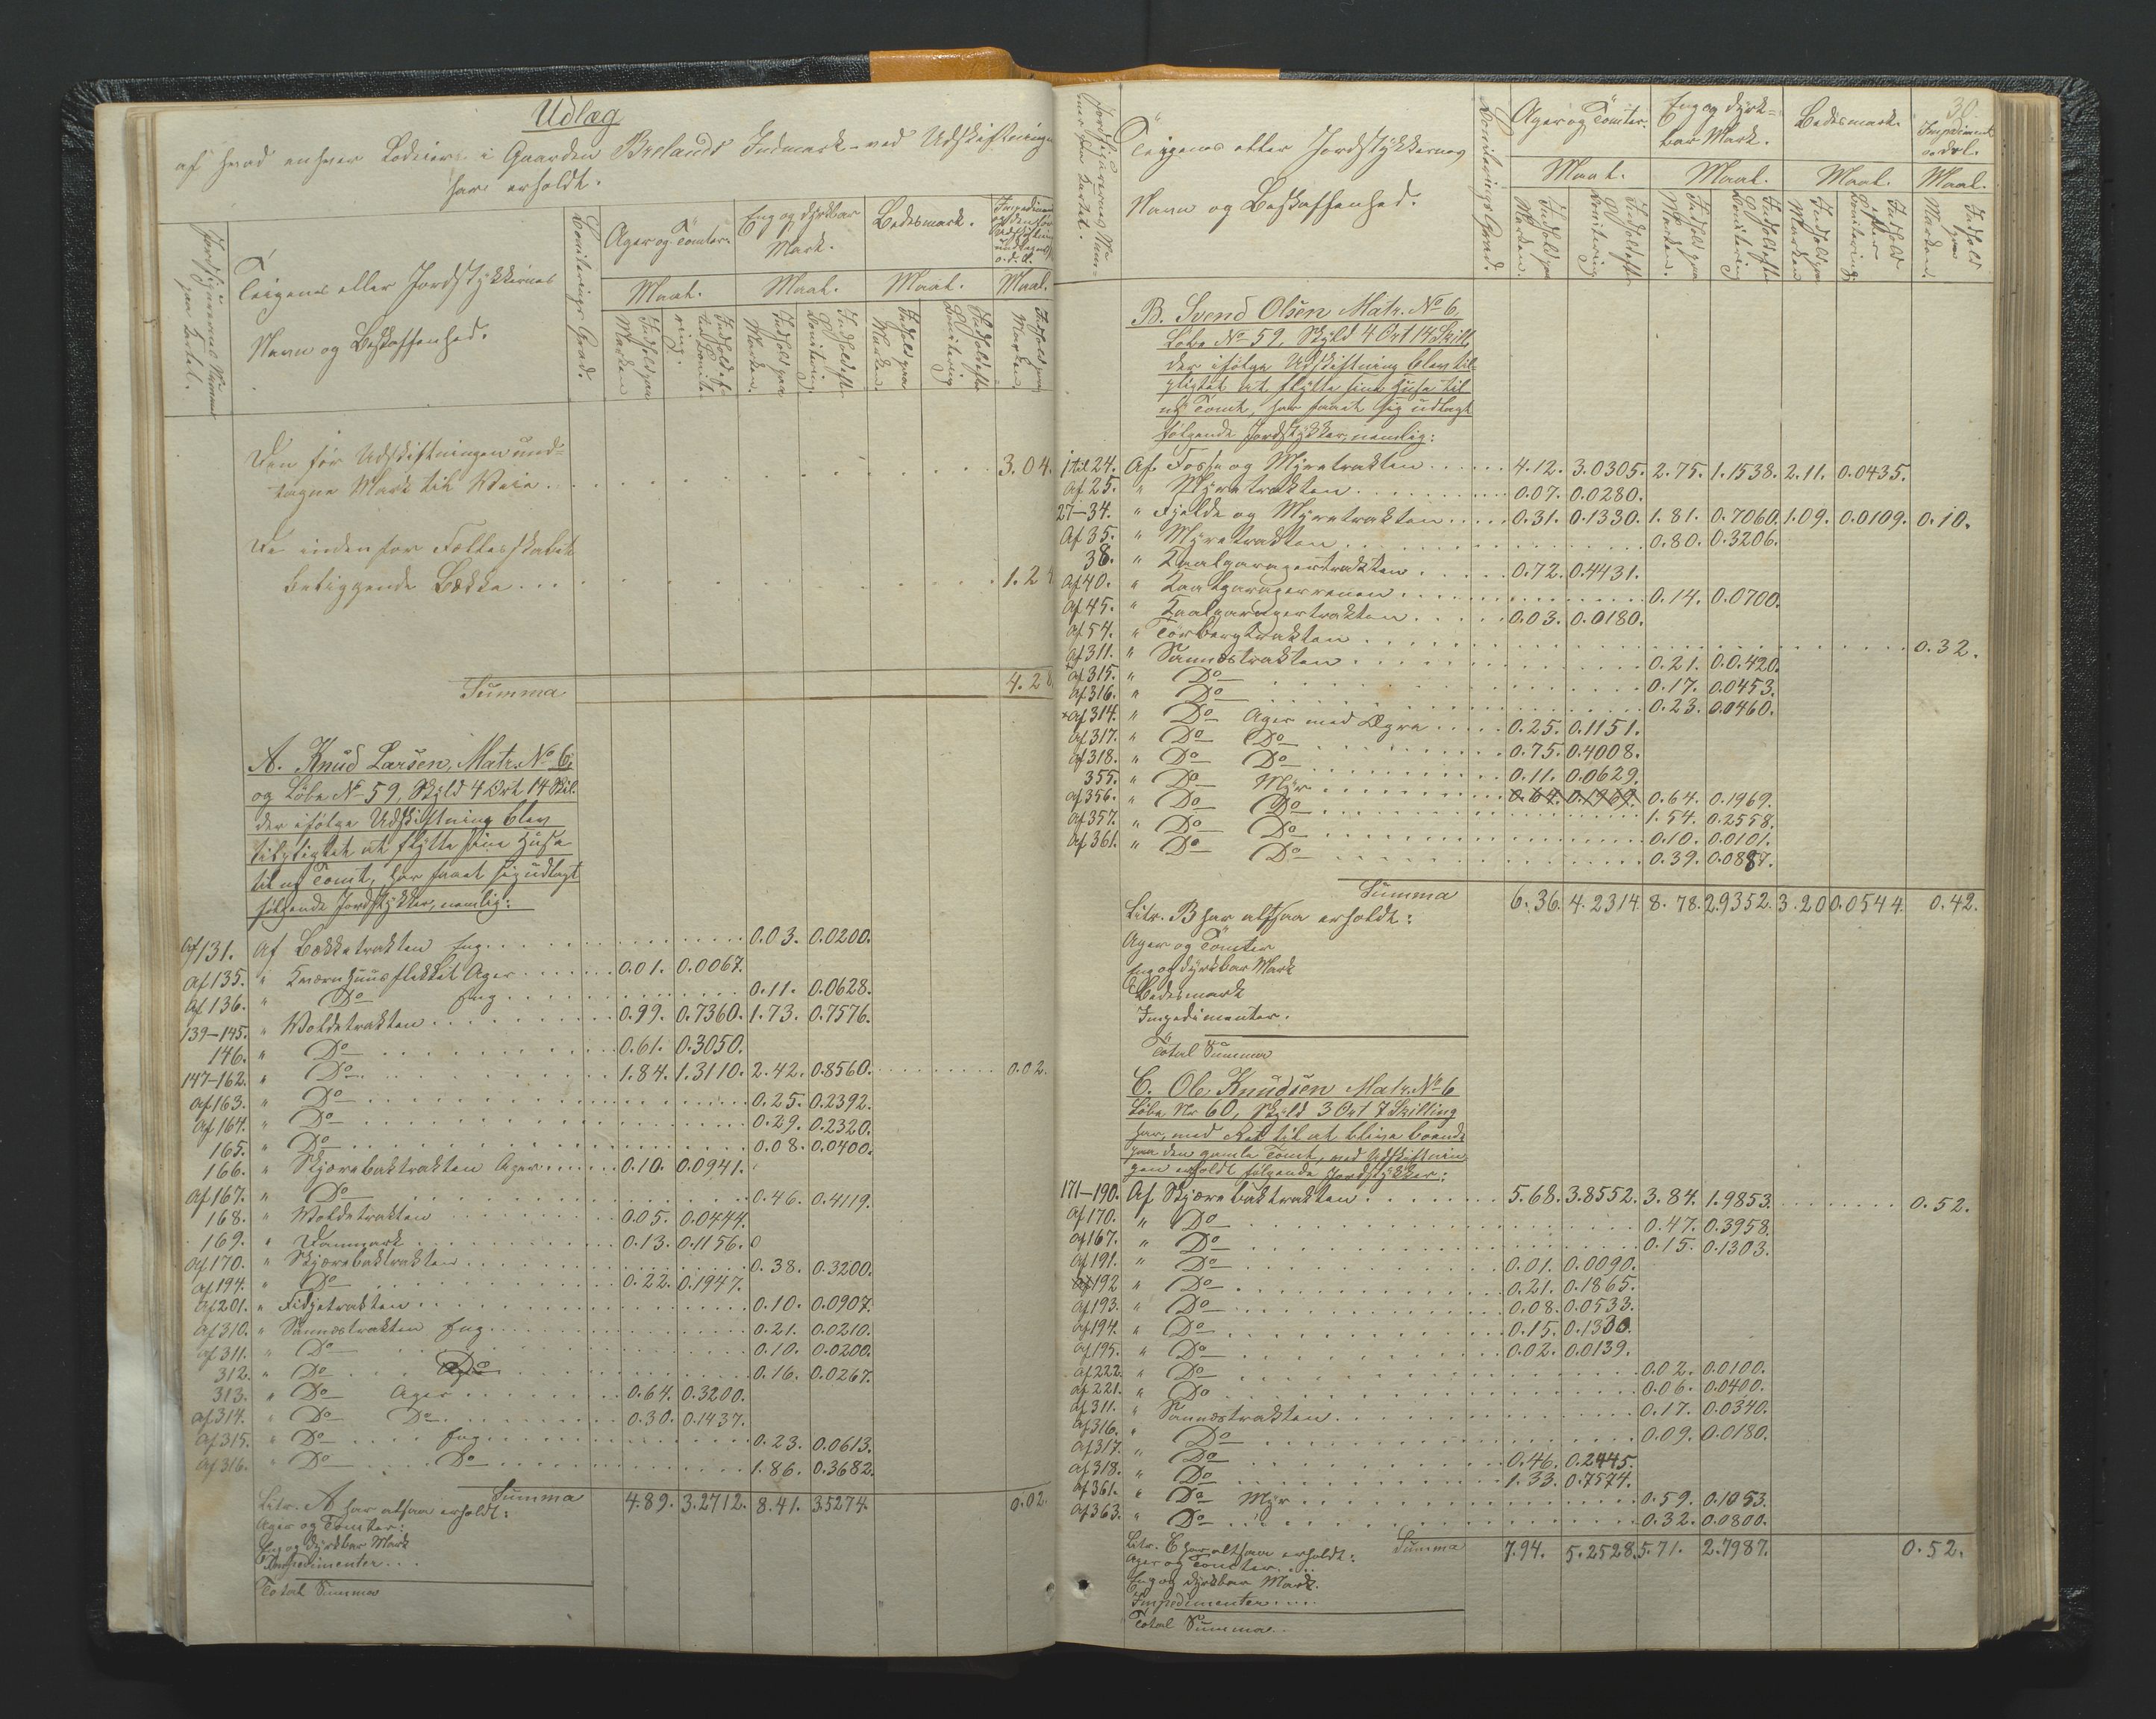 Udlæg
af hvad enhver Lodeier i Gaarden Brelands Indmark ved Udskiftningen
har erholdt.
Jordfigurernes Nummer paa Kartet.
Teigenes eller Jordstykkernes
Navn og Beskaffenhed.
Boniterings Grad.
Ager og Tomter.
Eng og dyrkbar
Mark.
Bedesmark.
Maal. Maal. Maal. Maal.
Indhold paa Marken
Indhold efter Bonitering.
Indhold paa Marken.
Indhold efter Bonitering
Indhold paa Marken.
Indhold efter Bonitering
Indhold paa Marken.
Den før Udskiftningen und=
tagne Mark til Veie . . . 3.04.
De indenfor Fællesskabet
beliggende Bække . . . 1.24
Summa 4.28
A. Knud Larsen, Matr. No 6,
og Løbe No 59, Skyld 4 Ort 14 Skil.
der ifølge Udskiftning blev
tilpligtet at flytte sine Huse
til ny Tomt, har faaet sig udlagt
følgende Jordstykker, nemlig:
Af 131. Af Bækketrakten Eng . . . 0.03. 0.0200.
Af 135. " Kværnhuusflekket Ager . . . 0.01. 0.0067.
Af 136. " Do Eng . . . 0.11. 0.0628.
139-145. " Voldetrakten . . . 0.99. 0.7360. 1.73. 0.7576.
146. " Do . . . 0.61. 0.3050.
147-162. " Do . . . 1.84. 1.3110. 2.42. 0.8560. . . . 0.02.
Af 163. " Do . . . 0.25. 0.2392.
Af 164. " Do . . . 0.29. 0.2320.
165. " Do . . . 0.08. 0.0400.
166. " Skjærebaktrakten Ager . . . 0.10. 0.0941.
Af 167. " Do . . . 0.46. 0.4119.
168. " Voldetrakten . . . 0.05. 0.0444.
169. " Danmark . . . 0.13. 0.1156. 0
Af 170. " Skjærebaktrakten . . . 0.38. 0.3200.
Af 194. " Do . . . 0.22. 0.1947.
Af 201. " Fidjetrakten . . . 0.10. 0.0907.
Af 310. " Sannæstrakten Eng . . . 0.21. 0.0210.
Af 311. " Do . . . 0.10. 0.0200.
312. " Do . . . Do . . . 0.16. 0.0267.
313. " Do Ager . . . 0.64. 0.3200.
Af 314. " Do Do . . . 0.30. 0.1437.
Af 315. " Do . . . Eng . . . 0.23. 0.0613.
Af 316. " Do . . . Do . . . 1.86. 0.3682.
Summa 4.89. 3.2712. 8.41. 3.5274. 0.02.
Litr. A har altsaa erholdt:
Ager og Tomter:
Eng og dyrkbar Mark
Impedimenter . . .
Total Summa
30.
Jordfigurernes Num=
mer paa Kartet.
Teigenes eller Jordstykkernes
Navn og Beskaffenhed.
Boniterings Grad.
Ager og Tomter.
Eng og dyrk=
bar Mark.
Bedesmark.
Impediment
o. dsl.
Maal. Maal. Maal. Maal.
Indhold paa Marken.
Indhold efter Bonitering
Indhold paa Marken.
Indhold efter Bonitering
Indhold paa Marken
Indhold efter Bonitering
Indhold paa Marken.
B. Svend Olsen Matr. No 6,
Løbe No 59, Skyld 4 Ort 14 Skill.
der ifølge Udskiftning blev til=
pligtet at flytte sine Huse til
ny Tomt, har faaet sig udlagt
følgende Jordstykker, nemlig:
1 til 24. Af Fosse og Myretrakten . . . 4.12. 3.0305. 2.75. 1.1538. 2.11. 0.0435.
Af 25. " Myretrakten . . . 0.07. 0.0280.
27-34. " Fjelde og Myretrakten . . . 0.31. 0.1330. 1.81. 0.7060. 1.09. 0.0109. 0.10.
Af 35. " Myretrakten . . . 0.80. 0.3206.
38. " Kaalgaragertrakten . . . 0.72. 0.4431.
Af 40. " Kaalgaragerrenen . . . 0.14. 0.0700.
Af 45. " Kaalgaragertrakten . . . 0.03. 0.0180.
Af 54. " Torbergtrakten . . . 0.32.
Af 311. " Sannæstrakten . . . 0.21. 0.0.420.
Af 315. " Do . . . 0.17. 0.0453.
Af 316. " Do . . . 0.23. 0.0460.
Af 314. " Do Ager med Agre . . . 0.25. 0.1151.
Af 317. " Do Do . . . 0.75. 0.4008.
Af 318. " Do Do . . . 0.11. 0.0629.
355. " Do Myr . . . 0.64. 0.1969. 0.64. 0.1969.
Af 356. " Do Do . . . 1.54. 0.2558.
Af 357. " Do Do . . . 0.10. 0.0101.
Af 361. " Do Do . . . 0.39. 0.0887.
Summa 6.36. 4.2314 8.78. 2.9352. 3.20 0.0544. 0.42.
Litr. B har altsaa erholdt:
Ager og Tomter
Eng og dyrkbar Mark
Bedesmark
Impedimenter.
Total Summa
C. Ole Knudsen Matr. No 6
Løbe Nr 60, Skyld 3 Ort 7 Skilling
har, med Ret til at blive boende
paa den gamle Tomt, ved Udskiftnin
gen erholdt følgende Jordstykker:
171-190. Af Skjærebaktrakten . . . 5.68. 3.8552. 3.84. 1.9853. . . . 0.52.
Af 170. " Do . . . 0.47. 0.3958.
Af 167. " Do . . . 0.15. 0.1303.
Af 191. " Do . . . 0.01. 0.0090.
Af 192 " Do . . . 0.21. 0.1865.
Af 193. " Do . . . 0.08. 0.0533.
Af 194. " Do . . . 0.15. 0.1330.
Af 195. " Do . . . 0.02. 0.0139.
Af 222. " Do . . . 0.02. 0.0100.
Af 221. " Do . . . 0.06. 0.0400.
Af 311. " Sannæstrakten . . . 0.17. 0.0340.
Af 316. " Do . . . 0.09. 0.0180.
Af 317. " Do . . . 0.46. 0.2445.
Af 318. " Do . . . 1.33. 0.7574.
Af 361. " Do Myr . . . 0.59. 0.1053.
Af 363. " Do " . . . 0.32. 0.0800.
Litr. C har altsaa erholdt: Summa 7.94. 5.2528. 5.71. 2.7987. 0.52.
Ager og Tomter . . .
Eng og dyrkbar Mark.
Impedimenter . . . .
Total Summa . .